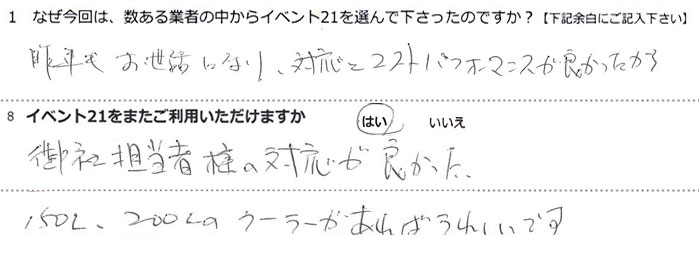 1 なぜ今回は、数ある業者の中からイベント21を選んで下さったのですか？【下記余白にご記入下さい】
昨年もお世話になり、対応とコストパフォーマンスが良かったから
8 イベント21をまたご利用いただけますか はい いいえ
御社担当者様の対応が良かった。
150L、200Lのクーラーがあればうれしいです